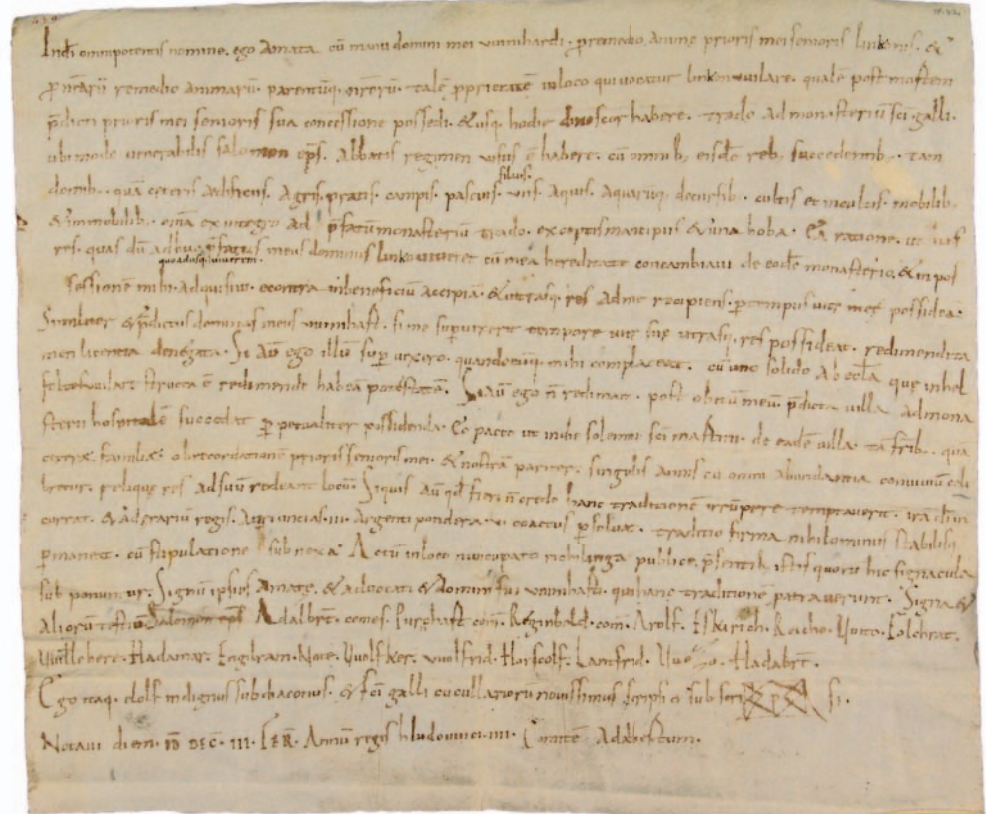 In dei omnipotentis nomine. ego Amata cū manu domini mei uuinihardi. p remedio animę prioris mei senioris linkonis. &
p nr̄arū remedio animarū. parentūq; nr̄orū. talē pprietatē in loco qui uocatur linkonuuilare. qualē post mortem
p̄dicti prioris mei senioris sua concessione possedi. & usq; hodie dinoscor habere. trado ad monasteriū sc̄i galli.
ubi modo uenerabilis salomon ep̄s. abbatis regimen uisus ē habere. cū omnib; eisdē reb; succedentib;. tam
domib;. quā ceteris aedificiis. agris. pratis. campis. pascuis. siluis. uiis. aquis. aquarūq; decursib;. cultis et incultis. mobilib;
& immobilib;. om̄a ex integro ad p̄fatū monasteriū trado. exceptis mancipiis & una hoba. Ea ratione. ut ipsas
res. quas dū adhuc p̄fatus meus dominus linko uiueret cū mea hereditate concambiaui de eodē monasterio. & in pos
quoadusq; uiuerem.
sessionē mihi adquisiui. econtra in beneficiū accipiā. & utrasq; res ad me recipiens. p tempus uitę meę possideā.
Similiter & p̄dictus dominus meus uuinihart. si me sup uixerit tempore uitę suę utrasq; res possideat. redimendi ta
men licentia denegata. Si aū ego illū sup uixero. quandocūq; mihi complaceat. cū uno solido ab ecl̄a quę in hel
structa ē redimendi habeā potestatē. Si aū ego n̄ redimam. post obitū meū p̄dicta uilla ad mona
sterii hospitalē succedat ppetualiter possidenda. Eo pacto ut inibi solemni sc̄i martini. de eadē uilla. tā frib;. quā
ceterę familiae. ob recordationē prioris senioris mei. & nostrā pariter. singulis annis cū omni abundantia conuiuiū cele
bretur. reliquę res ad suū redeant locū. Siquis aū qd̄ fieri n̄ credo hanc traditionē inrūpere temptauerit. irā dei in
currat. & ad erariū regis. auri uncias. iii. argenti pondera. v. coactus psoluat. traditio firma nihilominus stabilisq;
pmaneat. cū stipulatione subnexa. Actū in loco nuncupato nichilinga publice. p̄sentib; istis quorū hic signacula
sub ponuntur. Signū ipsius Amatę. & aduocati & domini sui uuinihardi. qui hanc traditionē patrauerunt. Signa &
aliorū testiū Salomon ep̄s Adalbrēt. comes. Purchart com̄. Reginbald. com̄. Arolf. Eskirich. Reicho. Vuito. Folchrat.
Vuillebere. Hadamar. Engilram. Note. Vuolfker. vuolfrid. Horscolf. Lantfrid. Hadabrēt.
Ego itaq; dolf indignus subdiaconus. & sc̄i galli cucullariorū nouissimus scripsi et subscripsi.
Notaui diem. iD DEC. iii. FER. Annū regis hludouuici. iiii. Comitē Adalbertum.